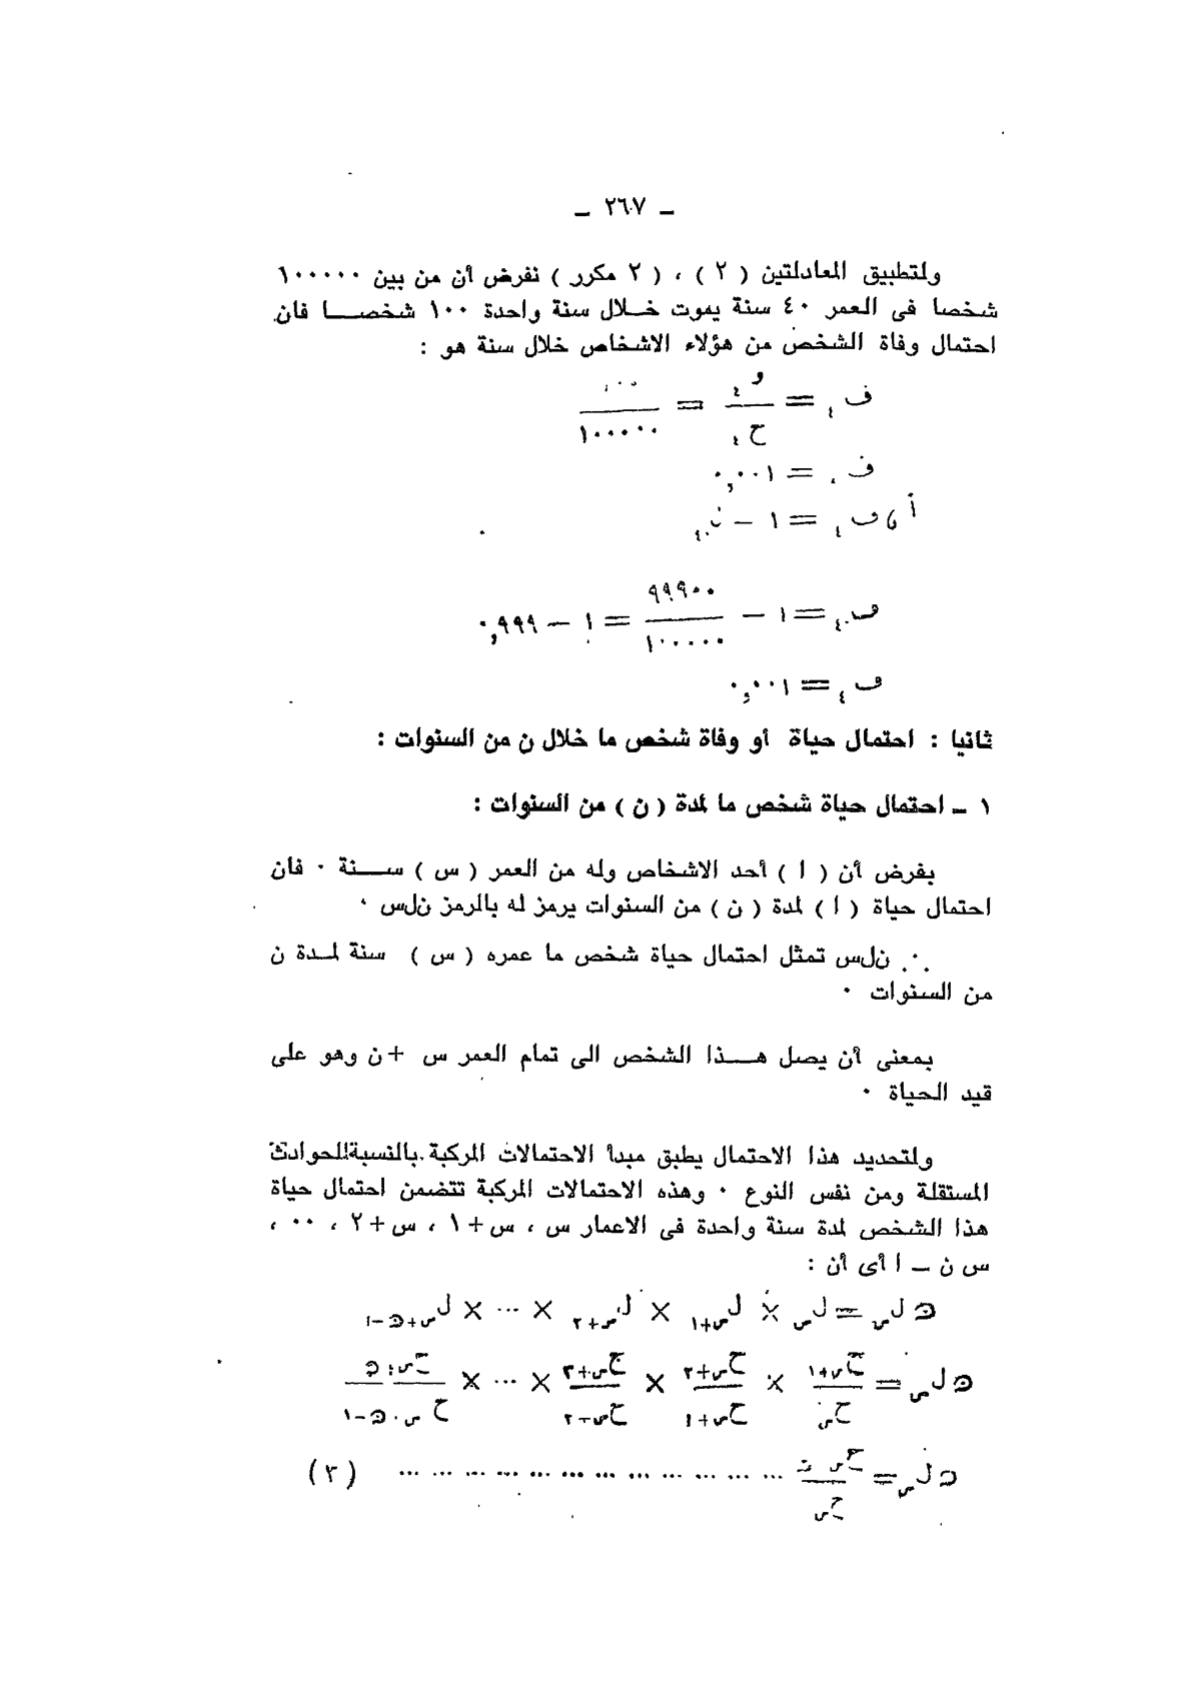 ـ ٢٦٧ ـ
ولتطبيق المعادلتين ( ٢ ) ، ( ٢ مكرر ) نفرض أن من بين ١٠٠٠٠٠
شخصا فى العمر ٤٠ سنة يموت خــلال سنة واحدة ١٠٠ شخصـــا فان
احتمال وفاة الشخص من هؤلاء الاشخاص خلال سنة هو :
ف = و / ح = / ١٠٠٠٠٠
ف = ٠,٠٠١
أ ، ف = ١ —
ف٤٠ = ١ — ٩٩٩٠٠ / ١٠٠٠٠٠ = ١ — ٠,٩٩٩
ف = ٠,٠٠١
ثانيا : احتمال حياة أو وفاة شخص ما خلال ن من السنوات :
١ ـ احتمال حياة شخص ما لمدة ( ن ) من السنوات :
بفرض أن ( ا ) أحد الاشخاص وله من العمر ( س ) ســـنة ٠ فان
احتمال حياة ( ا ) لمدة ( ن ) من السنوات يرمز له بالرمز نلس ٠
∴ نلس تمثل احتمال حياة شخص ما عمره ( س ) سنة لمـدة ن
من السنوات ٠
بمعنى أن يصل هـــذا الشخص الى تمام العمر س + ن وهو على
قيد الحياة ٠
ولتحديد هذا الاحتمال يطبق مبدأ الاحتمالات المركبة بالنسبة للحوادث
المستقلة ومن نفس النوع ٠ وهذه الاحتمالات المركبة تتضمن احتمال حياة
هذا الشخص لمدة سنة واحدة فى الاعمار س ، س+١ ، س+٢ ، ٠٠ ،
س ن ــ ا أى أن :
ن ل س = ل س × ل س+١ × ل س+٢ × ... × ل س+ن-١
ن ل س = ح س+١ / ح س × ح س+٢ / ح س+١ × ح س+٣ / ح س+٢ × ... × ح س+ن / ح س+ن-١
ن ل س = ح س ن / ح س ... ... ... ... ... ... ... ... ... ... ... ... (٣)